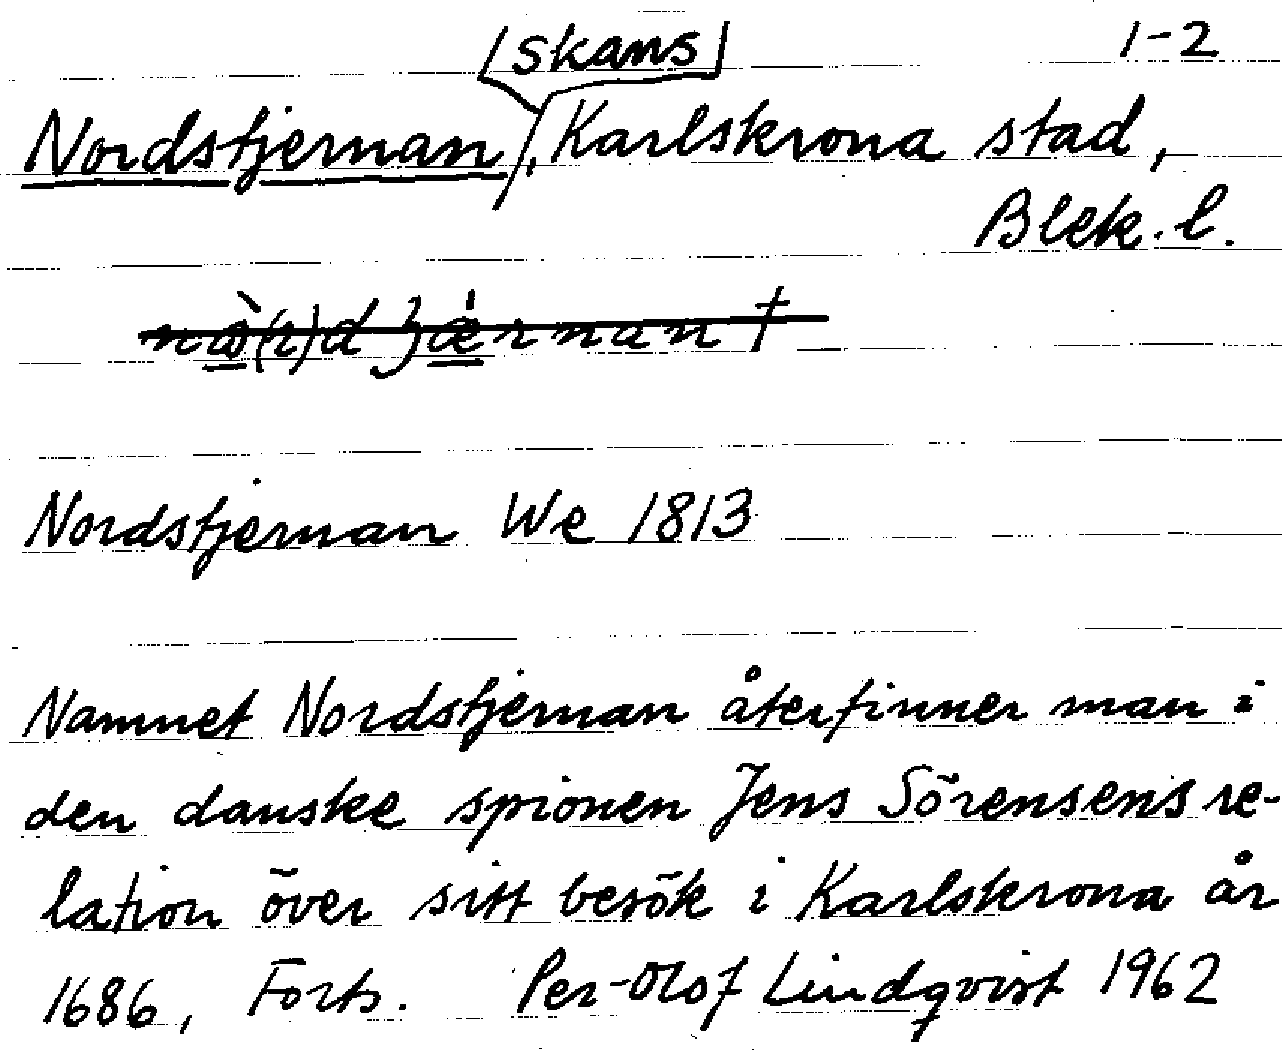 skans 1-2
Nordstjernan, Karlskrona stad,
Blek. l.
Nordstjernan We 1813
Namnet Nordstjernan återfinner man i
den danske spionen Jens Sörensens re-
lation över sitt besök i Karlskrona år
1686, Forts. Per-Olof Lindqvist 1962